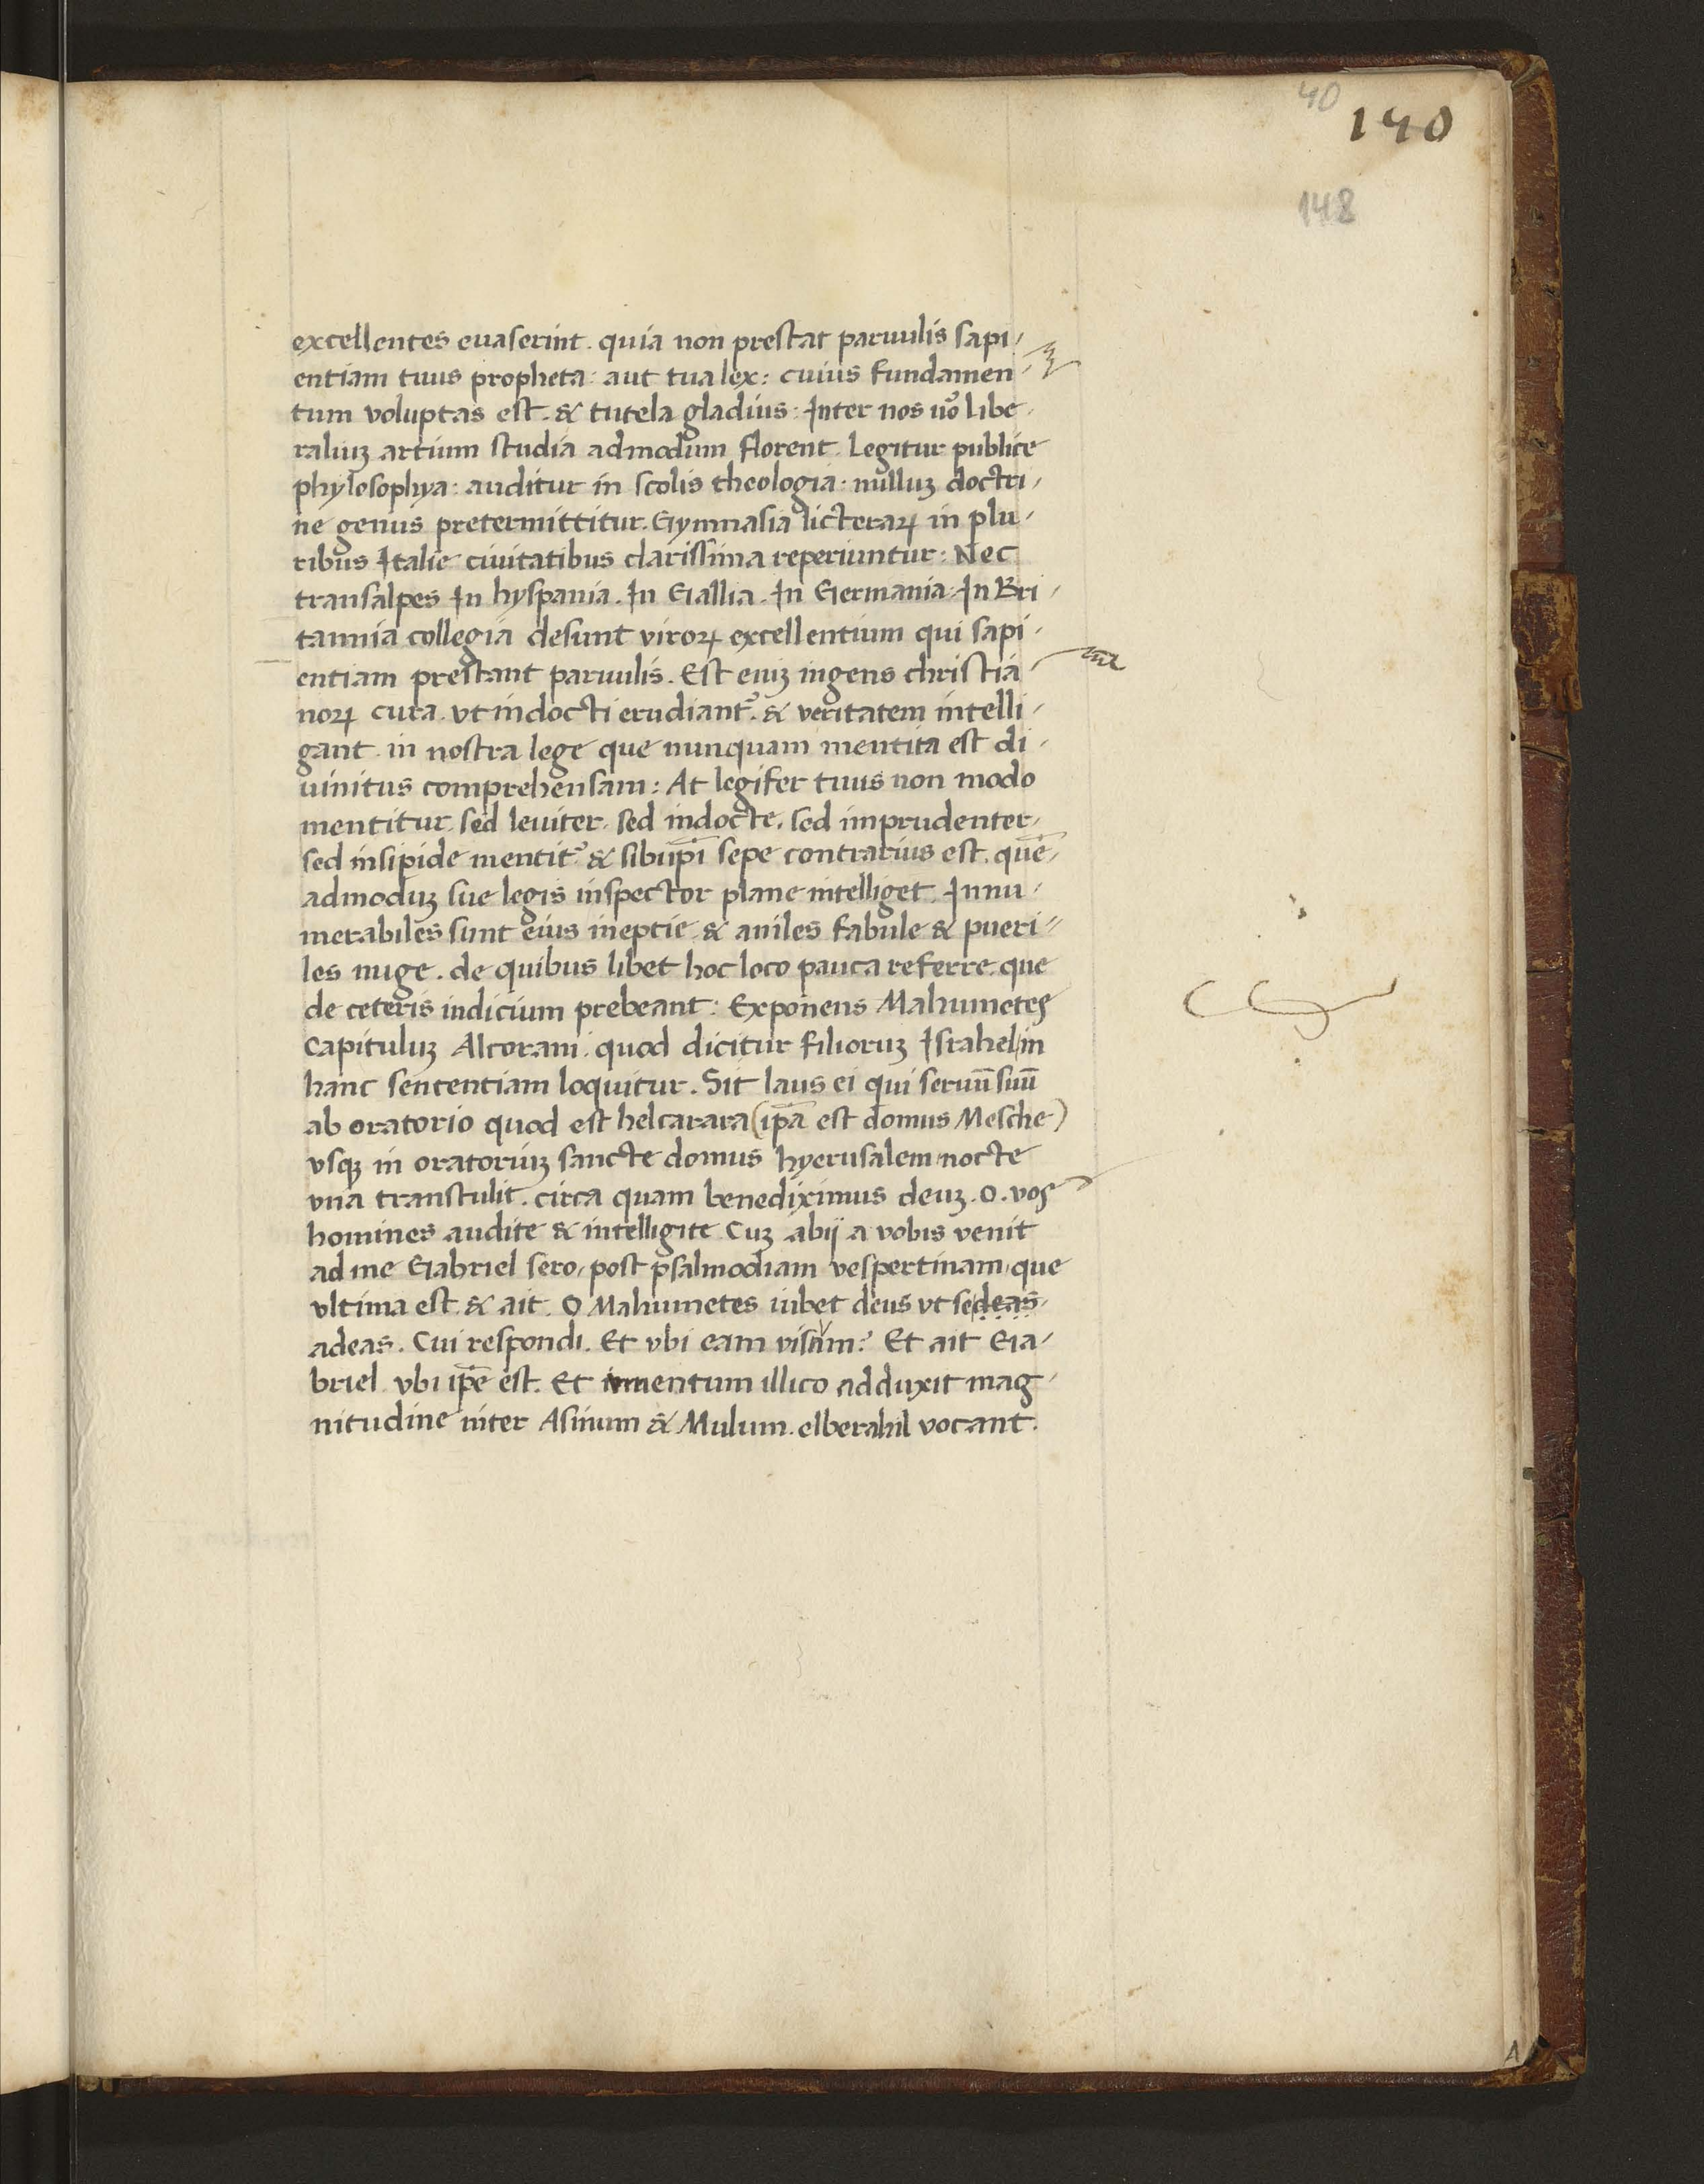 40
140
148
excellentes euaserint. quia non prestat paruulis sapi/
entiam tuus propheta: aut tua lex: cuius fundamen
tum voluptas est. & tutela gladius: Inter nos uo᷒ libe/
raliuꝫ artium studia admodum florent. Legitur publice
phylosophya: auditur in scolis theologia: nulluꝫ doctri/
ne genus pretermittitur. Gymnasia licteraꝝ in plu/
ribus Italie ciuitatibus clarissima reperiuntur: Nec
transalpes In hyspania. In Gallia. In Germania. In Bri/
tannia collegia desunt viroꝝ excellentium qui sapi/
entiam prestant paruulis. Est eniꝫ ingens christia/
noꝝ cura. vt indocti erudiant᷒. & veritatem intelli/
gant. in nostra lege que nunquam mentita est di/
uinitus comprehensam: At legifer tuus non modo
mentitur. sed leuiter. sed indocte. sed imprudenter/
sed insipide mentit᷒ & sibiip̄i sepe contrarius est. quē/
admoduꝫ sue legis inspector plane intelliget. Innu/
merabiles sunt eius ineptie & aniles fabule & pueri//
les nuge. de quibus libet hoc loco pauca referre. que
de ceteris indicium prebeant: Exponens Mahumetes
Capituluꝫ Alcorani. quod dicitur filioruꝫ Israhel/in
hanc sententiam loquitur. Sit laus ei qui seruū suū
ab oratorio quod est helcarara (ip̄a est domus Mesche)
vsqꝫ in oratoriuꝫ sancte domus hyerusalem/nocte
vna transtulit. circa quam benediximus deuꝫ. O. vos
homines audite & intelligite. Cuꝫ abij a vobis venit
ad me Gabriel sero/post psalmodiam vespertinam/que
vltima est. & ait. O Mahumetes iubet deus vt sedeas
adeas. Cui respondi. Et vbi eam visam? Et ait Ga/
briel. vbi ip̄e est. Et iumentum illico adduxit mag/
nitudine inter Asinum & Mulum. elberahil vocant.